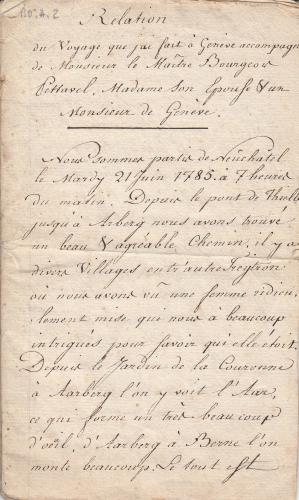 No. 4. 2
Relation
du Voyage que j'ai fait à Genève accompagné
de Monsieur le Maitre Bourgeois
Pettavel, Madame son Epouse & un
Monsieur de Genève.
Nous sommes partis de Neûchâtel
le Mardy 21 Juin 1785. à 7 heures
du matin. Depuis le pont de Thielle
jusqu'à Arberg nous avons trouvé
un beau & agréable Chemin, il y a
divers Villages entr'autre
où nous avons vû une femme ridicu-
lement mise qui nous à beaucoup
intrigués pour savoir qui elle étoit.
Depuis le Jardin de la Couronne
à Aarberg l'on y voit l'Aar,
ce qui forme un très beau coup
d'œil, d'Aarberg à Berne l'on
monte beaucoup. Le tout est